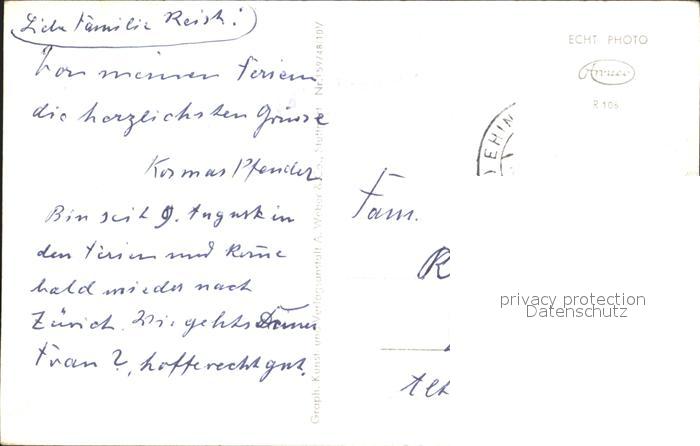 Liebe Familie Reisch!
Von meinen Ferien
die herzlichsten Grüsse
Kosmas Pfender
Bin seit 9. August in
den Ferien und komme
bald wieder nach
Zürich. Wie gehts Deiner
Frau?, hoffe recht gut.
Graph. Kunst- und Verlagsanstalt A. Weber & Co., Stuttgart Nr. 59748 10V
Fam.
R
Alt
ECHT PHOTO
R 106
EHIN
privacy protection
Datenschutz